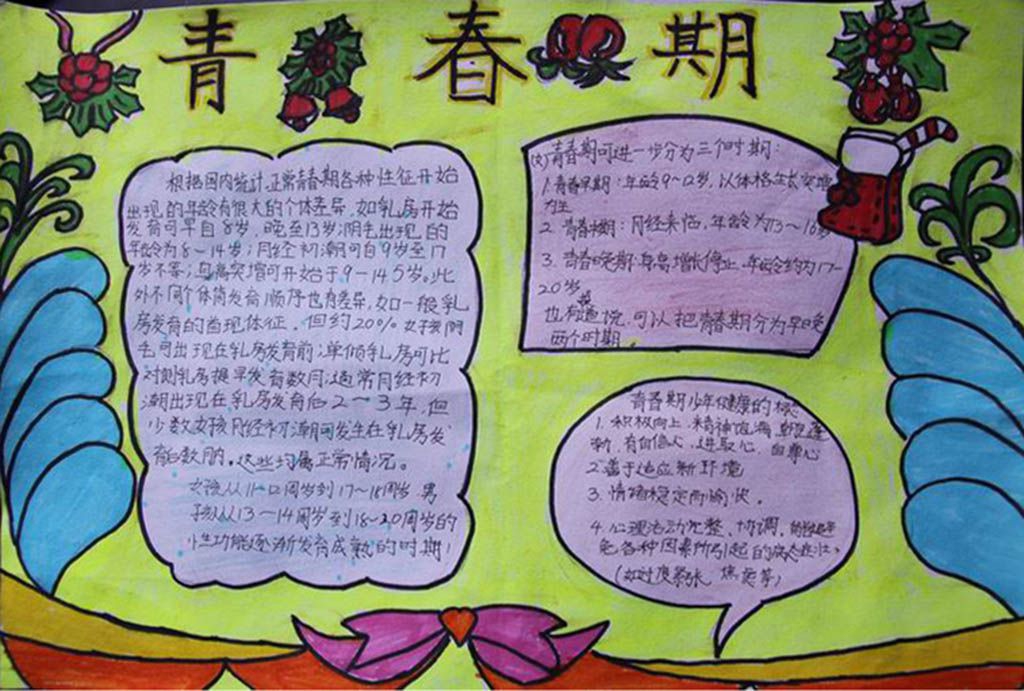 青春期
根据国内统计,正常青春期各种性征开始
出现的年龄有很大的个体差异,如乳房开始
发育可早自8岁,晚至13岁;阴毛出现的
年龄为8~14岁;月经初潮可自9岁至17
岁不等;身高突增可开始于9-14.5岁。此
外不同个体间发育顺序也有差异,如一般乳
房发育的首现体征,但约20%女孩阴
毛可出现在乳房发育前;单侧乳房可比
对侧乳房提早发育数月;通常月经初
潮出现在乳房发育后2~3年,但
少数女孩月经初潮可发生在乳房发
育数月。这些均属正常情况。
女孩从11-12周岁到17~18周岁,男
孩从13-14周岁到18-20周岁的
性功能逐渐发育成熟的时期!
青春期可进一步分为三个时期:
1.青春早期:年龄9~12岁,以体格生长突增
为主
2.青春中期:月经来临,年龄为13~16岁
3.青春晚期:身高增长停止,年龄约为17-
20岁
也有 况,可以把青春期分为早晚
两个时期
青春期少年健康的标志
1.积极向上,精神饱满,朝气蓬
勃,有自信心,进取心,自尊心
2.善于适应新环境
3.情绪稳定而愉快。
4.心理活动完整、协调,能避
免各种因素所引起的病态 ,
(如过度紧张,焦虑等)